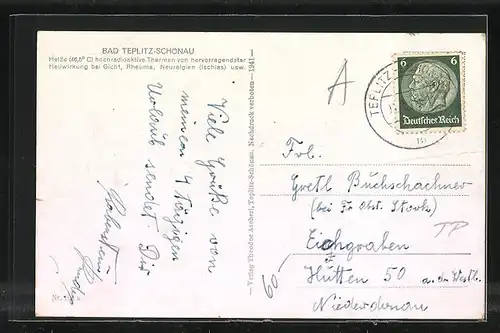 BAD TEPLITZ-SCHÖNAU
Heiße (46,5° C) hochradioaktive Thermen von hervorragendster
Heilwirkung bei Gicht, Rheuma, Neuralgien (Ischias) usw.
Viele Grüße von
meinem 4 tägigen
Urlaub sendet Dir
— Verlag Theodor Ascherl, Teplitz-Schönau. Nachdruck verboten —1941—
Nr.
A
TEPLITZ-
6 6
Deutsches Reich
Frl.
Gretl Buchschachner
(bei Fr. Obst. Stark)
Eichgraben
Hütten 50 a. d. Westb.
Niederdonau
TP